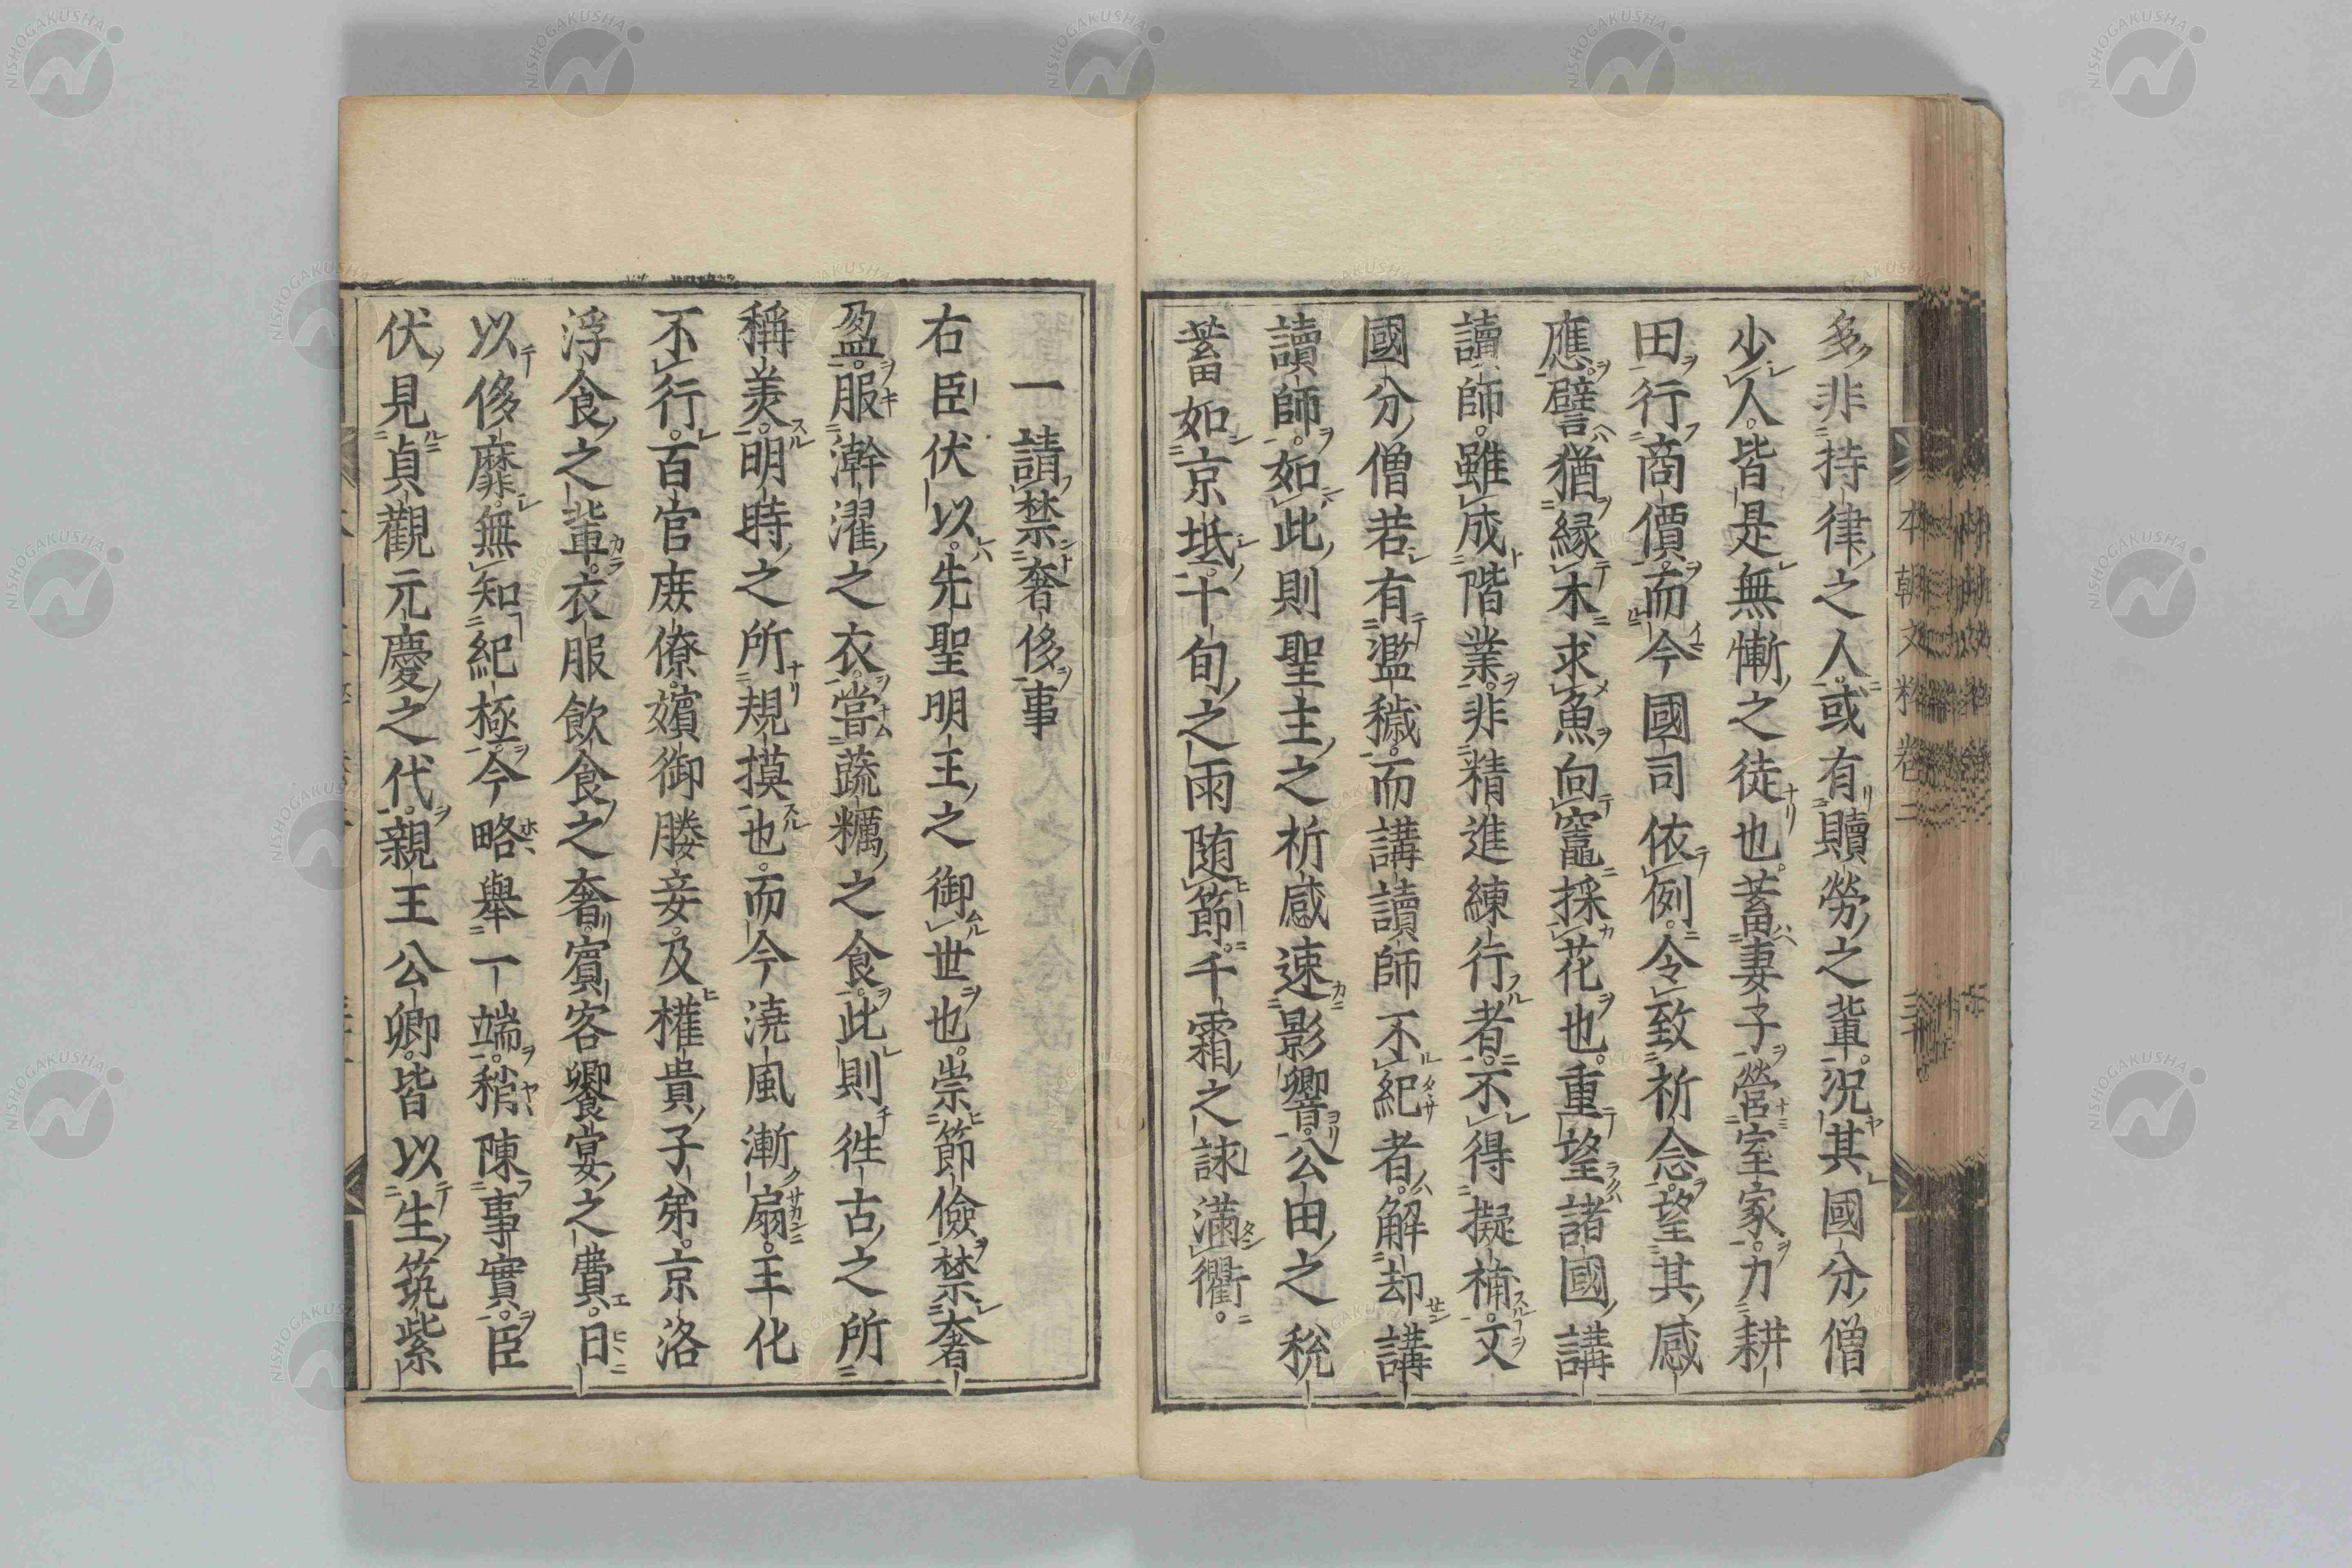 多非持律之人或有贖勞之輩。況其國分僧
少人。皆是無慚之徒也。蓄妻子營室家。力耕
田行商價。而今國司依例。令致祈念。望其感
應。譬猶緣木求魚。向竈採花也。重望諸國講
讀師。雖成階業。非精進練行者。不得擬補。文
國分僧若有濫穢。而講讀師不紀者。解却講
讀師。如此則聖主之祈感速影響。公田之稅
蓄如京坻。十旬之雨随節。千霜之詠滿衢。
一請禁奢侈事
右臣伏以。先聖明王之御世也。崇節儉禁奢
盈。服澣濯之衣。嘗蔬糲之食。此則徃古之所
稱羙。明時之所規摸也。而今澆風漸扇。王化
不行。百官庶僚。嬪御媵妾。及權貴子弟。京洛
浮食之輩。衣服飲食之奢。賓客饗宴之費。日
以侈靡。無知紀極。今略舉一端。稍陳事實。臣
伏見貞觀元慶之代。親王公卿。皆以生筑紫
本朝文粹卷二
三十
NISHOGAKUSHA